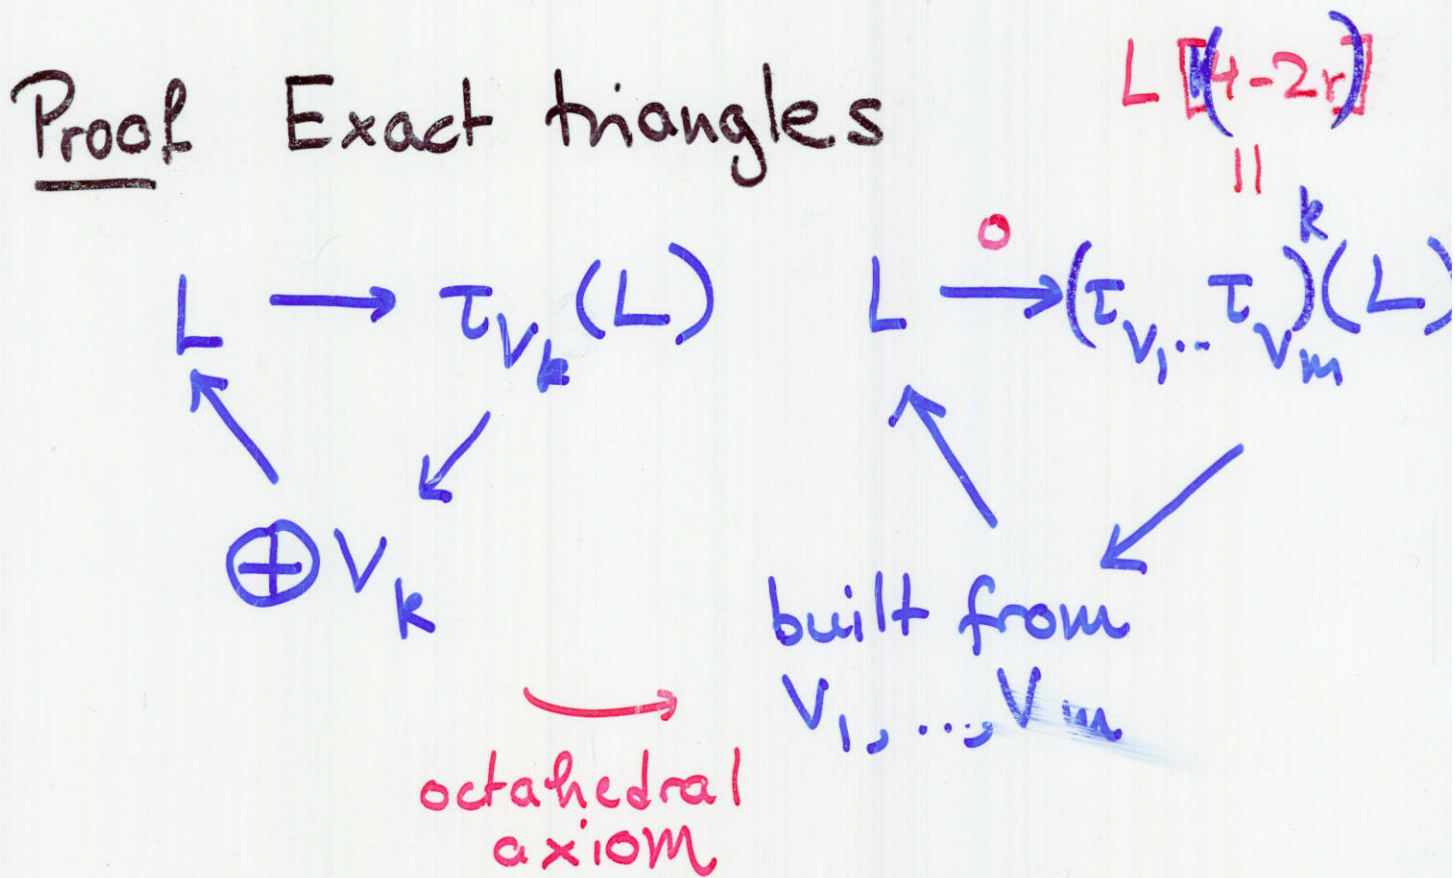 Proof Exact triangles
L [(4-2r)]
||
L → τ_{V_k}(L)
L →^0 (τ_{V_1}..τ_{V_m})^k(L)
⊕ V_k
built from
V_1,...,V_m
octahedral
axiom